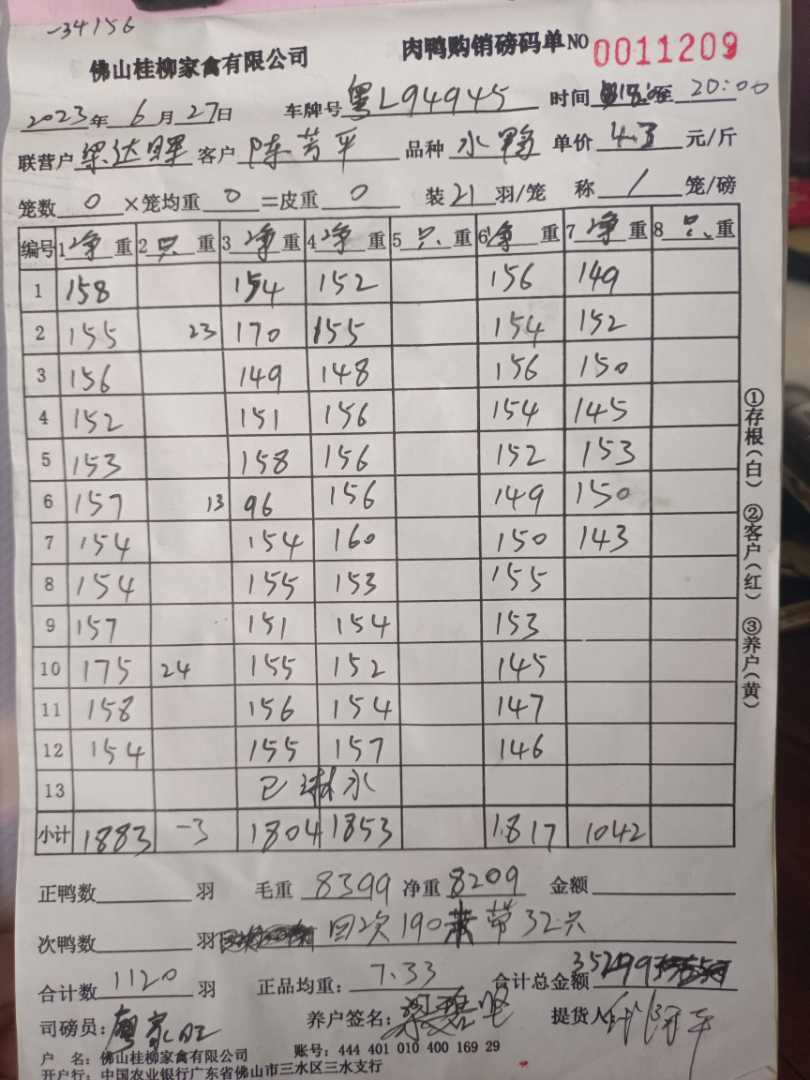 -34156
佛山桂柳家禽有限公司 肉鸭购销磅码单 NO 0011209
2023年 6月 27日 车牌号 粤L94945 时间 至 20:00
联营户 梁达旺 客户 陈芳平 品种 水鸭 单价 4.3 元/斤
笼数 0 ×笼均重 0 =皮重 0 装 21 羽/笼 称 1 笼/磅
编号 1净重 2只重 3净重 4净重 5只重 6净重 7净重 8只重
1 158 154 152 156 149
2 155 23 170 155 154 152
3 156 149 148 156 150
4 152 151 156 154 145
5 153 158 156 152 153
6 157 13 96 156 149 150
7 154 154 160 150 143
8 154 155 153 155
9 157 151 154 153
10 175 24 155 152 145
11 158 156 154 147
12 154 155 157 146
13 已淋水
小计 1883 -3 1804 1853 1817 1042
正鸭数 羽 毛重 8399 净重 8209 金额
次鸭数 羽 回次190 带32只
合计数 1120 羽 正品均重: 7.33 合计总金额 35299
司磅员: 廖家旺 养户签名: 提货人:
户 名: 佛山桂柳家禽有限公司 账号: 444 401 010 400 169 29
开户行: 中国农业银行广东省佛山市三水区三水支行
①存根(白) ②客户(红) ③养户(黄)